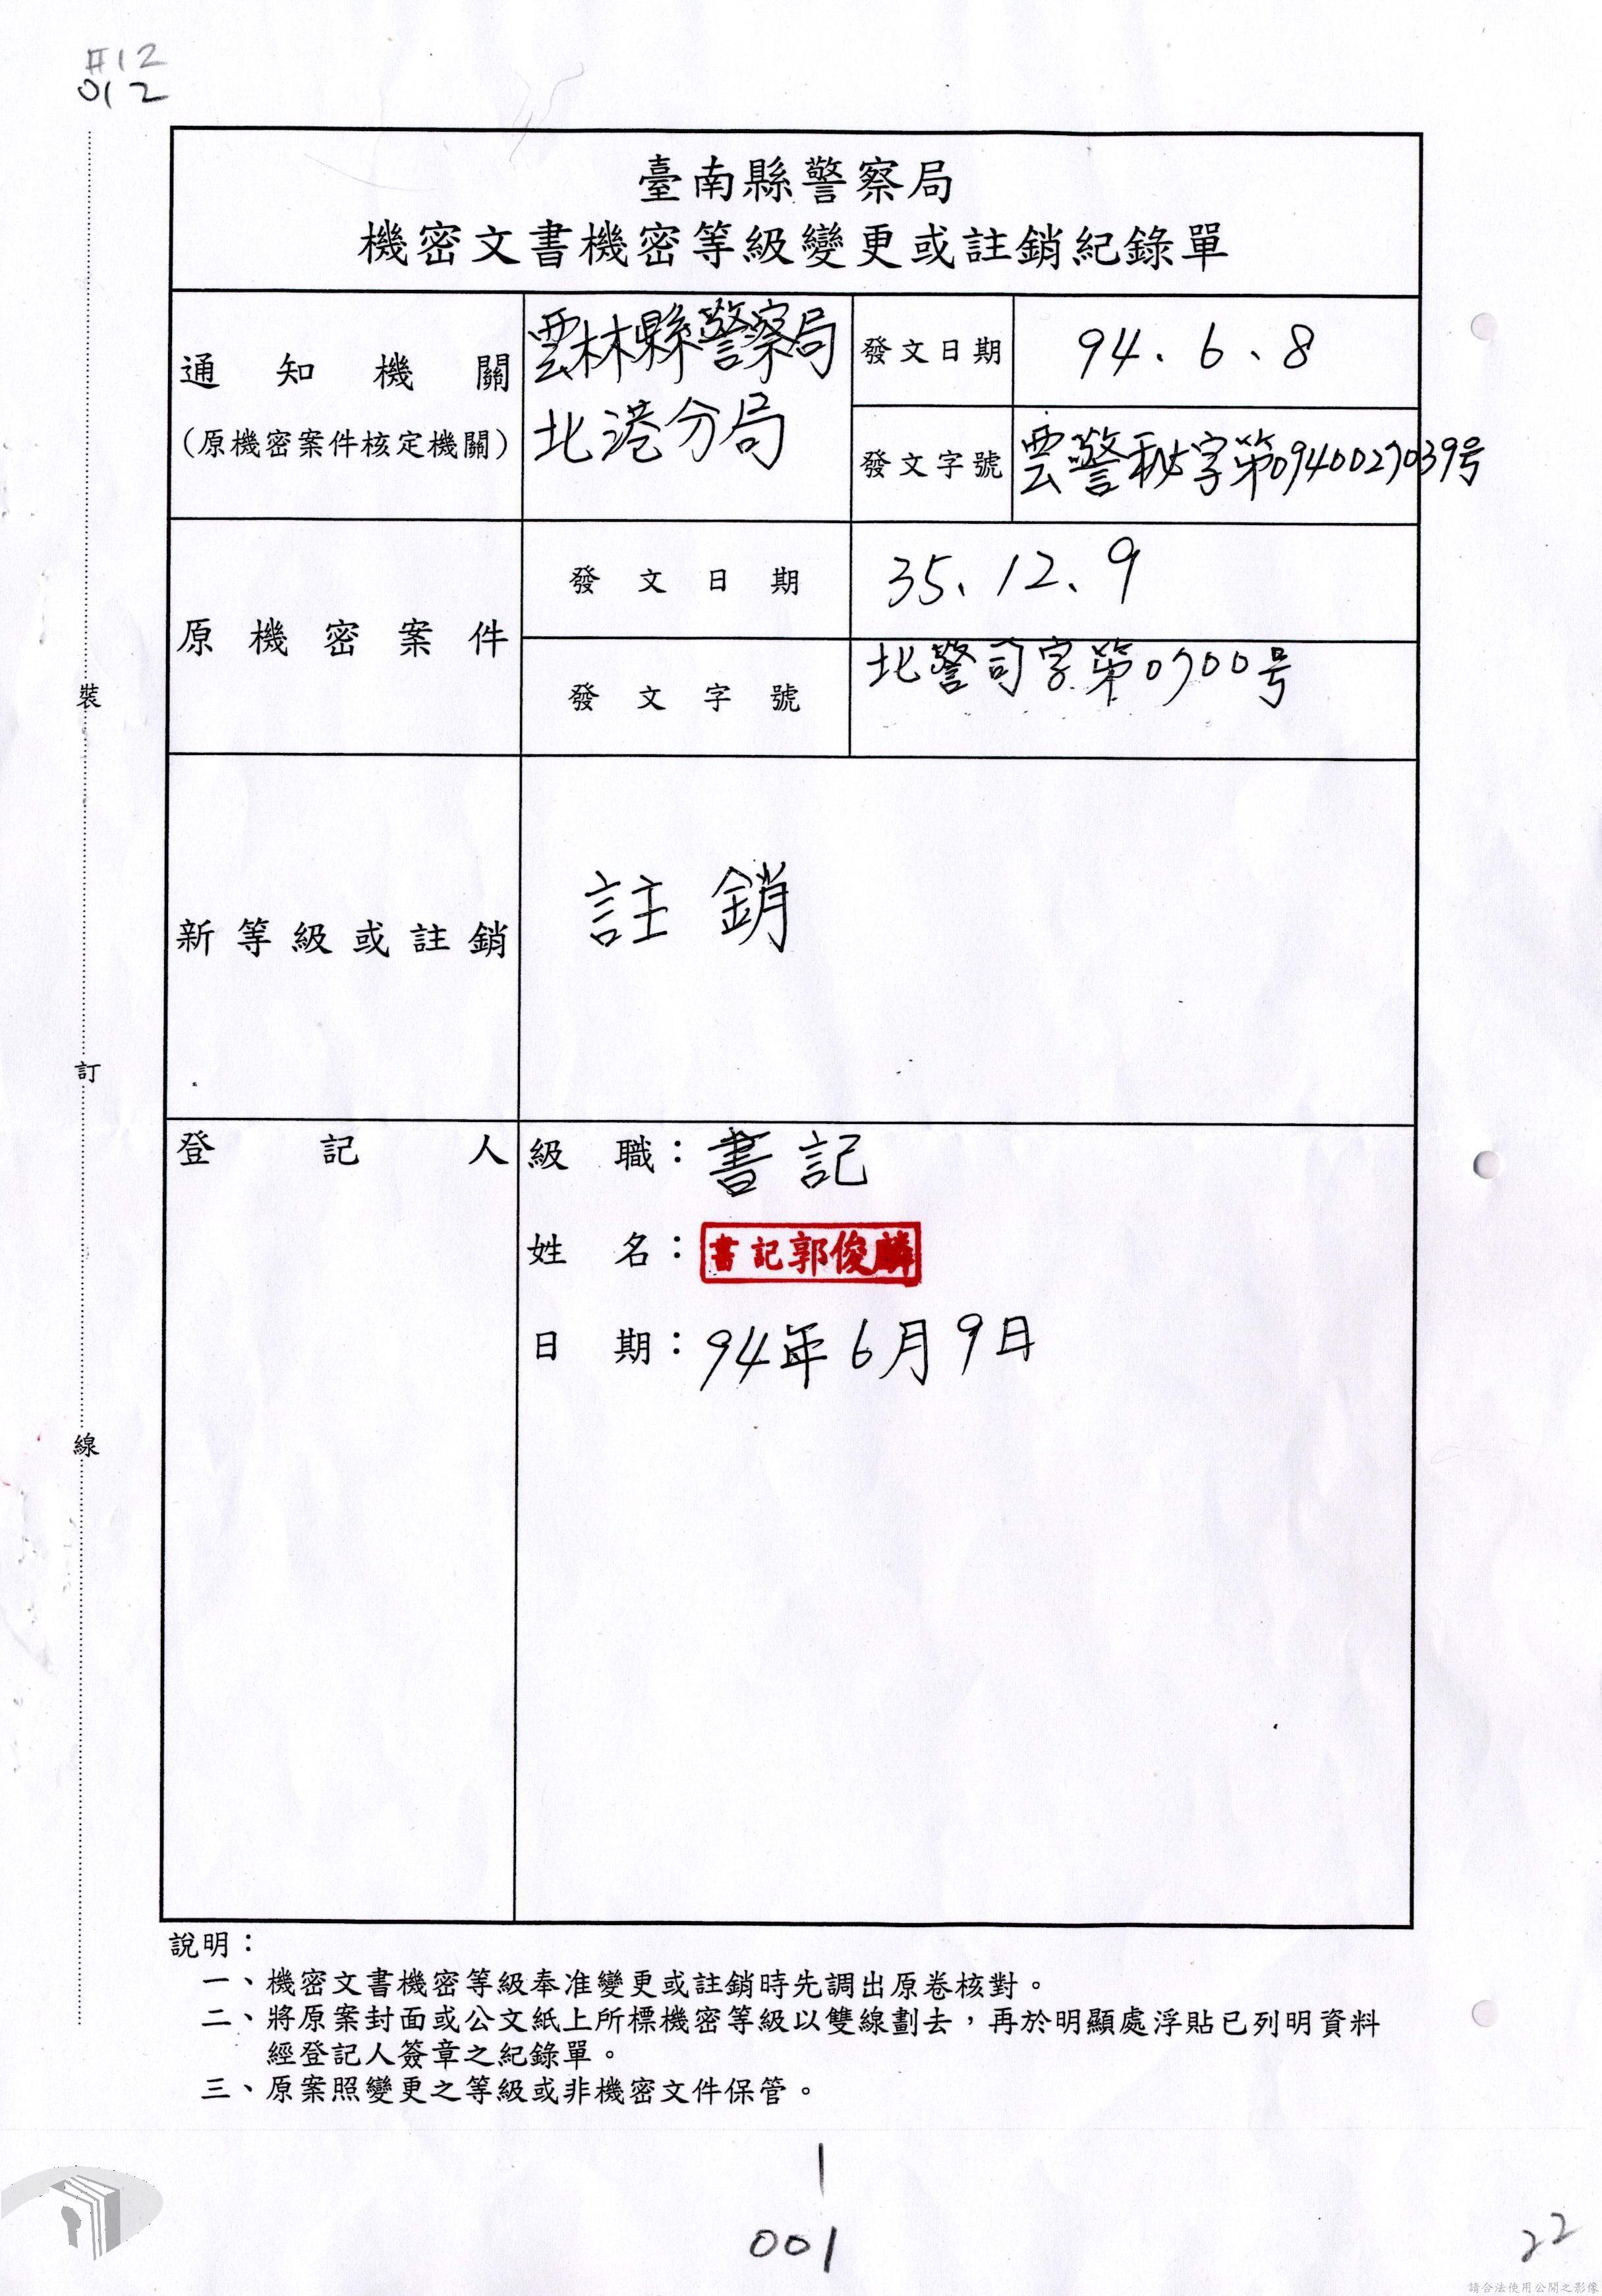 #12
012
臺南縣警察局
機密文書機密等級變更或註銷紀錄單
通知機關
(原機密案件核定機關)
雲林縣警察局
北港分局
發文日期
94.6.8
發文字號
雲警秘字第0940027039号
原機密案件
發文日期
35.12.9
發文字號
北警司字第0700号
新等級或註銷
註銷
登記人
級職：書記
姓名：書記郭俊麟
日期：94年6月9日
裝
訂
線
說明：
一、機密文書機密等級奉准變更或註銷時先調出原卷核對。
二、將原案封面或公文紙上所標機密等級以雙線劃去，再於明顯處浮貼已列明資料
經登記人簽章之紀錄單。
三、原案照變更之等級或非機密文件保管。
1
001
22
請合法使用公開之影像